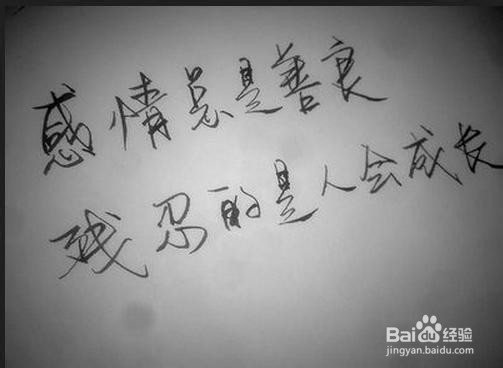 感情总是善良
残忍的是人会成长
Bai du 经验
jingyan.baidu.com